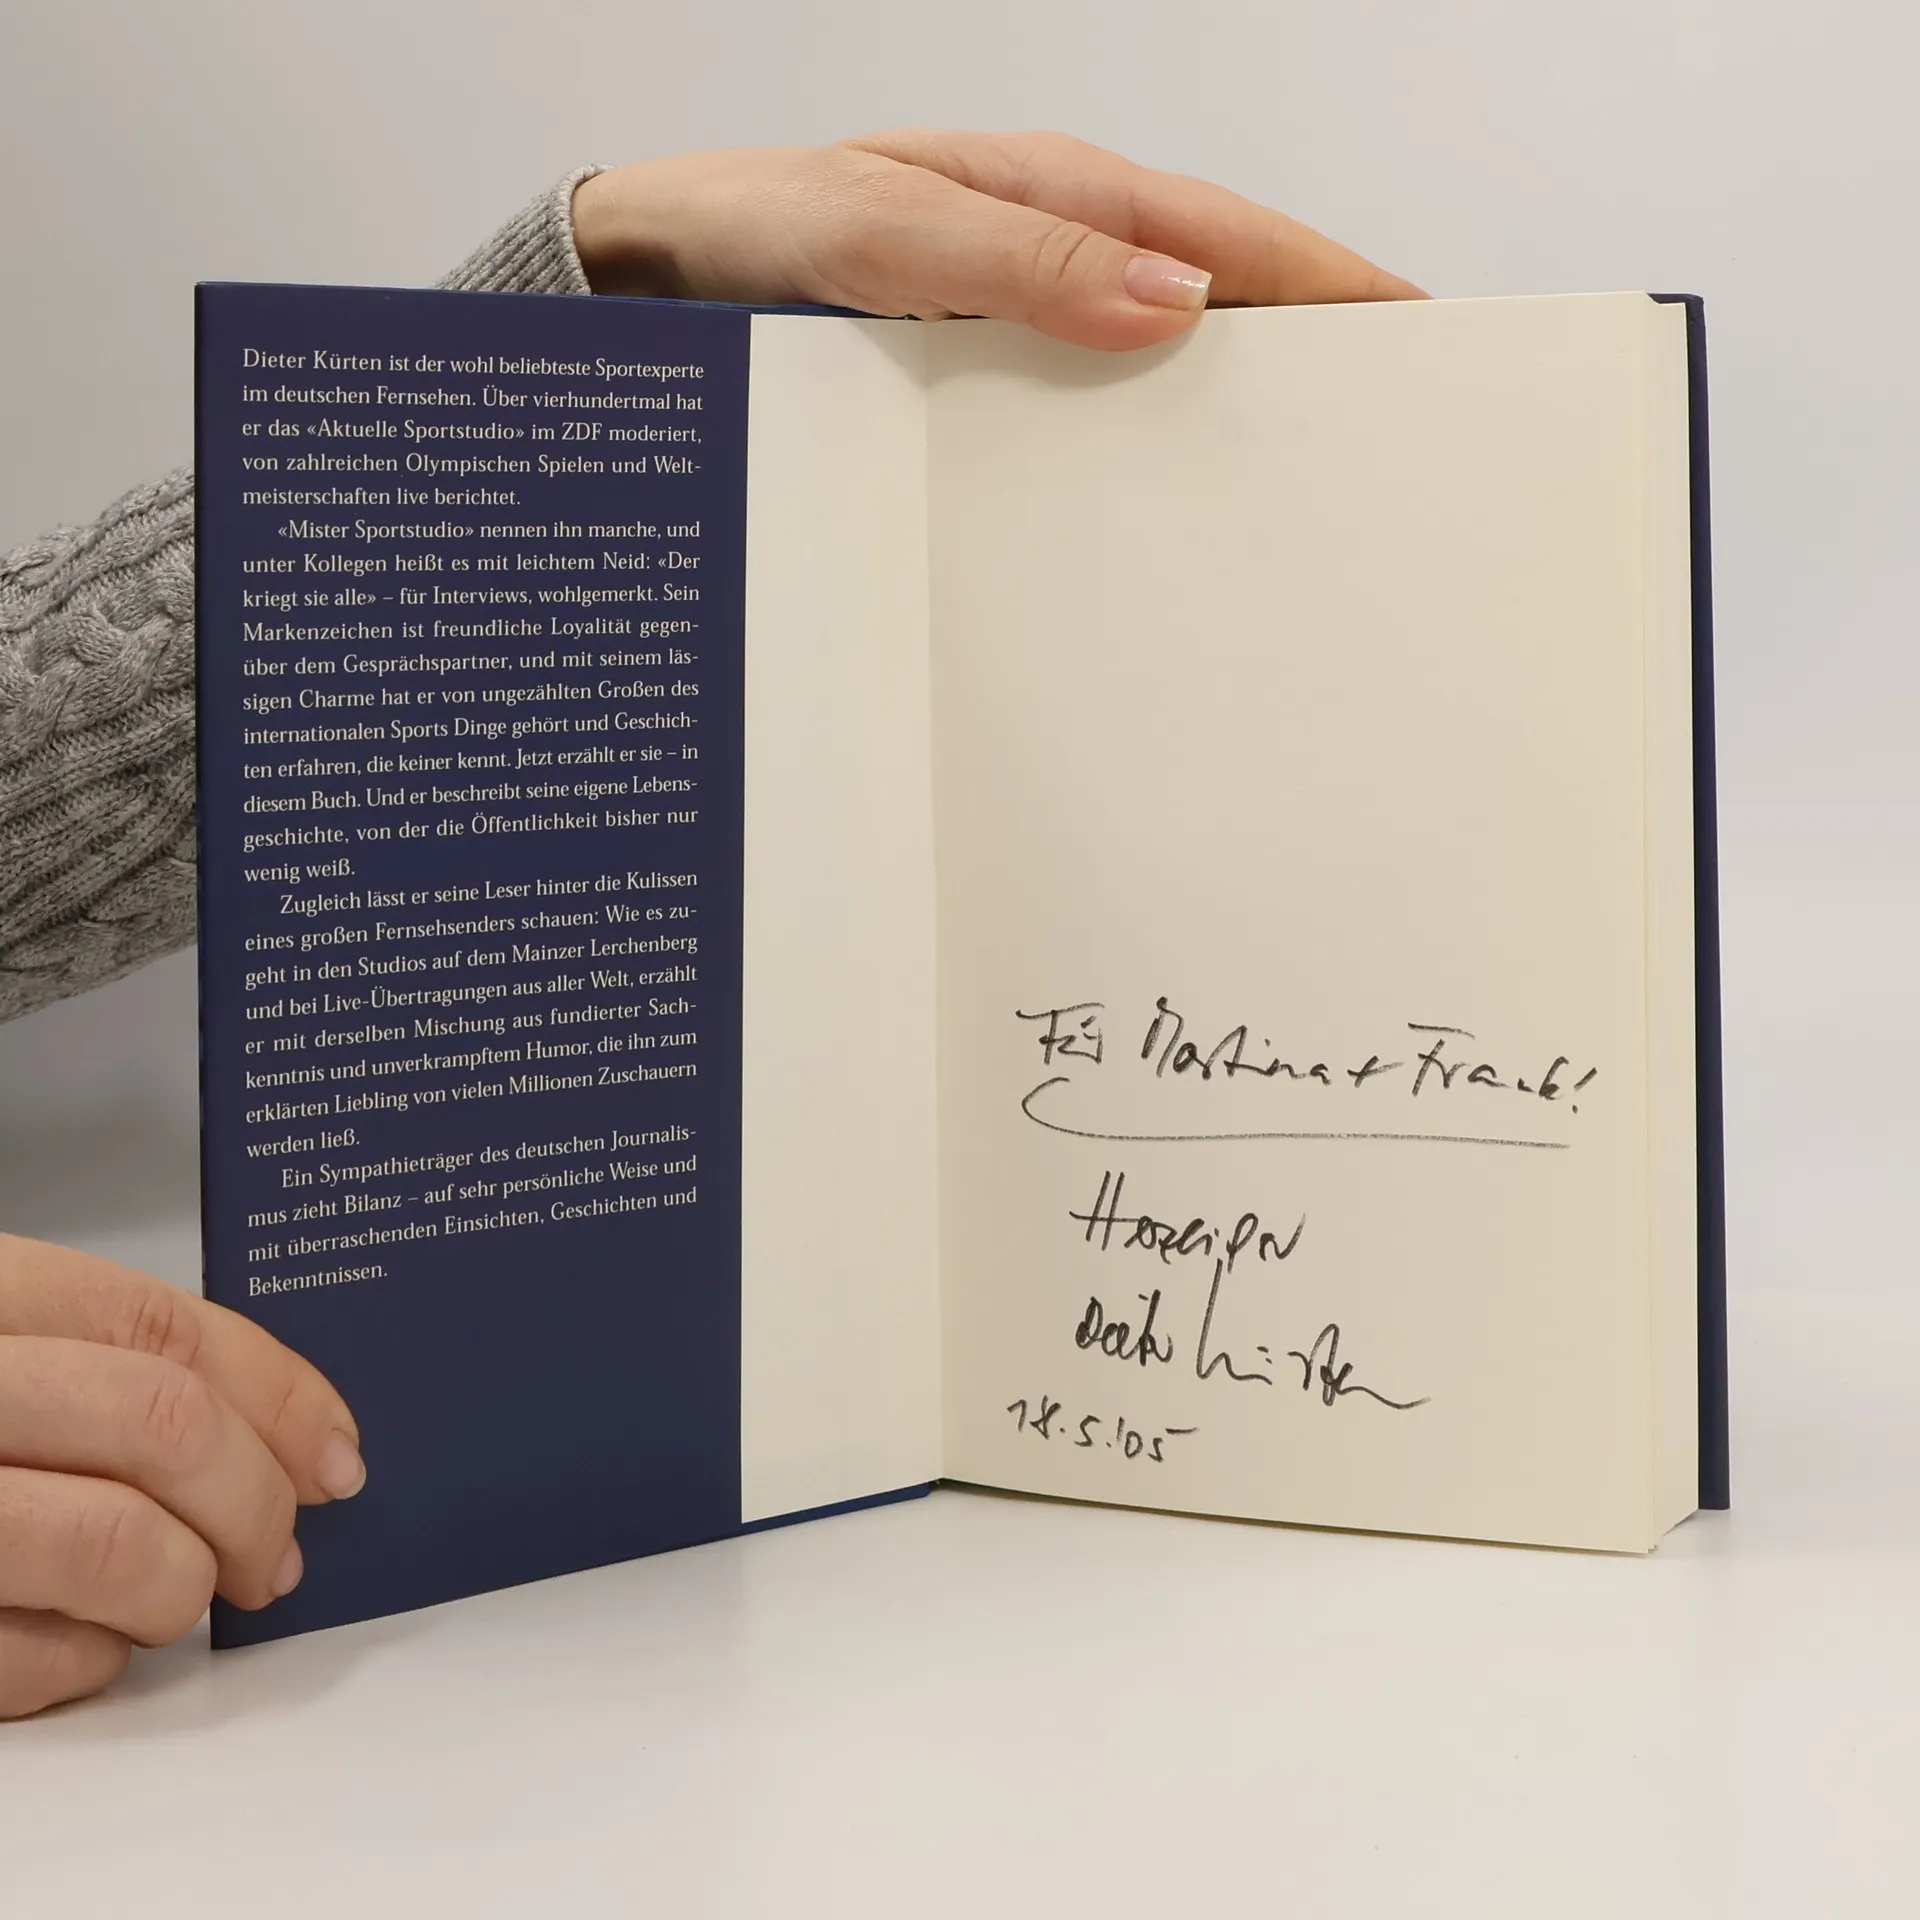 Dieter Kürten ist der wohl beliebteste Sportexperte
im deutschen Fernsehen. Über vierhundertmal hat
er das «Aktuelle Sportstudio» im ZDF moderiert,
von zahlreichen Olympischen Spielen und Welt-
meisterschaften live berichtet.
«Mister Sportstudio» nennen ihn manche, und
unter Kollegen heißt es mit leichtem Neid: «Der
kriegt sie alle» – für Interviews, wohlgemerkt. Sein
Markenzeichen ist freundliche Loyalität gegen-
über dem Gesprächspartner, und mit seinem läs-
sigen Charme hat er von ungezählten Großen des
internationalen Sports Dinge gehört und Geschich-
ten erfahren, die keiner kennt. Jetzt erzählt er sie – in
diesem Buch. Und er beschreibt seine eigene Lebens-
geschichte, von der die Öffentlichkeit bisher nur
wenig weiß.
Zugleich lässt er seine Leser hinter die Kulissen
eines großen Fernsehsenders schauen: Wie es zu-
geht in den Studios auf dem Mainzer Lerchenberg
und bei Live-Übertragungen aus aller Welt, erzählt
er mit derselben Mischung aus fundierter Sach-
kenntnis und unverkrampftem Humor, die ihn zum
erklärten Liebling von vielen Millionen Zuschauern
werden ließ.
Ein Sympathieträger des deutschen Journalis-
mus zieht Bilanz – auf sehr persönliche Weise und
mit überraschenden Einsichten, Geschichten und
Bekenntnissen.
Für Martina + Frank!
Dieter Kürten
18.5.'05